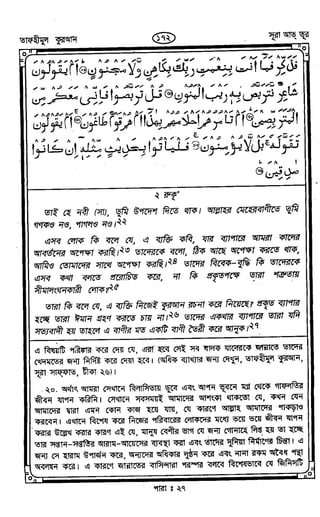 তাফহীমুল কুরআন
১৭২
সূরা আত্ তূর
فَذَكِّرْ فَمَا أَنْتَ بِنِعْمَتِ رَبِّكَ بِكَاهِنٍ وَّلَا مَجْنُونٍ ۝ أَمْ يَقُولُونَ
شَاعِرٌ نَّتَرَبَّصُ بِهِ رَيْبَ الْمَنُونِ ۝ قُلْ تَرَبَّصُوا فَإِنِّي مَعَكُمْ مِّنَ
الْمُتَرَبِّصِينَ ۝ أَمْ تَأْمُرُهُمْ أَحْلَامُهُمْ بِهَٰذَا أَمْ هُمْ قَوْمٌ طَاغُونَ ۝ أَمْ يَقُولُونَ
تَقَوَّلَهُ بَلْ لَّا يُؤْمِنُونَ ۝ فَلْيَأْتُوا بِحَدِيثٍ مِّثْلِهِ إِنْ كَانُوا
صَادِقِينَ ۝
২ রুকূ'
তাই হে নবী (সা), তুমি উপদেশ দিতে থাক। আল্লাহর মেহেরবাণীতে তুমি
গণকও নও, পাগলও নও।২২
এসব লোক কি বলে যে, এ ব্যক্তি কবি, যার ব্যাপারে আমরা কালের
আবর্তনের অপেক্ষা করছি।২৩ তাদেরকে বলো, ঠিক আছে অপেক্ষা করতে থাক,
আমিও তোমাদের সাথে অপেক্ষা করছি।২৪ তাদের বিবেক-বুদ্ধি কি তাদেরকে
এসব কথা বলতে প্ররোচিত করে, না কি প্রকৃতপক্ষে তারা শত্রুতায়
সীমালংঘনকারী লোক?২৫
তারা কি বলে যে, এ ব্যক্তি নিজেই কুরআন রচনা করে নিয়েছে? প্রকৃত ব্যাপার
হচ্ছে তারা ঈমান গ্রহণ করতে চায় না।২৬ তাদের একথার ব্যাপারে তারা যদি
সত্যবাদী হয় তাহলে এ বাণীর মত একটি বাণী তৈরী করে আনুক।২৭
এ বিষয়টি পরিষ্কার করে দেয় যে, এরা হবে সেই সব বালক যাদেরকে জান্নাতে তাদের
খেদমতের জন্য নির্দিষ্ট করে দেয়া হবে। (অধিক ব্যাখ্যার জন্য দেখুন, তাফহীমুল কুরআন,
সূরা সাফ্ফাত, টীকা ২৬)।
২০. অর্থাৎ আমরা সেখানে বিলাসিতায় ডুবে এবং আপন ভুবনে মগ্ন থেকে গাফলতির
জীবন যাপন করিনি। সেখানে সবসময়ই আমাদের আশংকা থাকতো যে, কখন যেন
আমাদের দ্বারা এমন কোন কাজ হয়ে যায়, যে কারণে আল্লাহ আমাদের পাকড়াও
করবেন। এখানে বিশেষ করে নিজের পরিবারের লোকদের মধ্যে ভয়ে ভয়ে জীবন যাপন
করার উল্লেখ করার কারণ এই যে, মানুষ বেশীর ভাগ যে জন্য গোনাহে লিপ্ত হয় তা হচ্ছে
তার সন্তান-সন্ততির আরাম-আয়েশের ব্যবস্থা করা এবং তাদের দুনিয়া নির্মাণের চিন্তা। এ
জন্য সে হারাম উপার্জন করে, অন্যদের অধিকার লুণ্ঠন করে এবং নানা রকম অবৈধ পন্থা
অবলম্বন করে। এ কারণে জান্নাতের বাসিন্দারা পরস্পর বলবে বিশেষভাবে যে জিনিসটি
পারা : ২৭